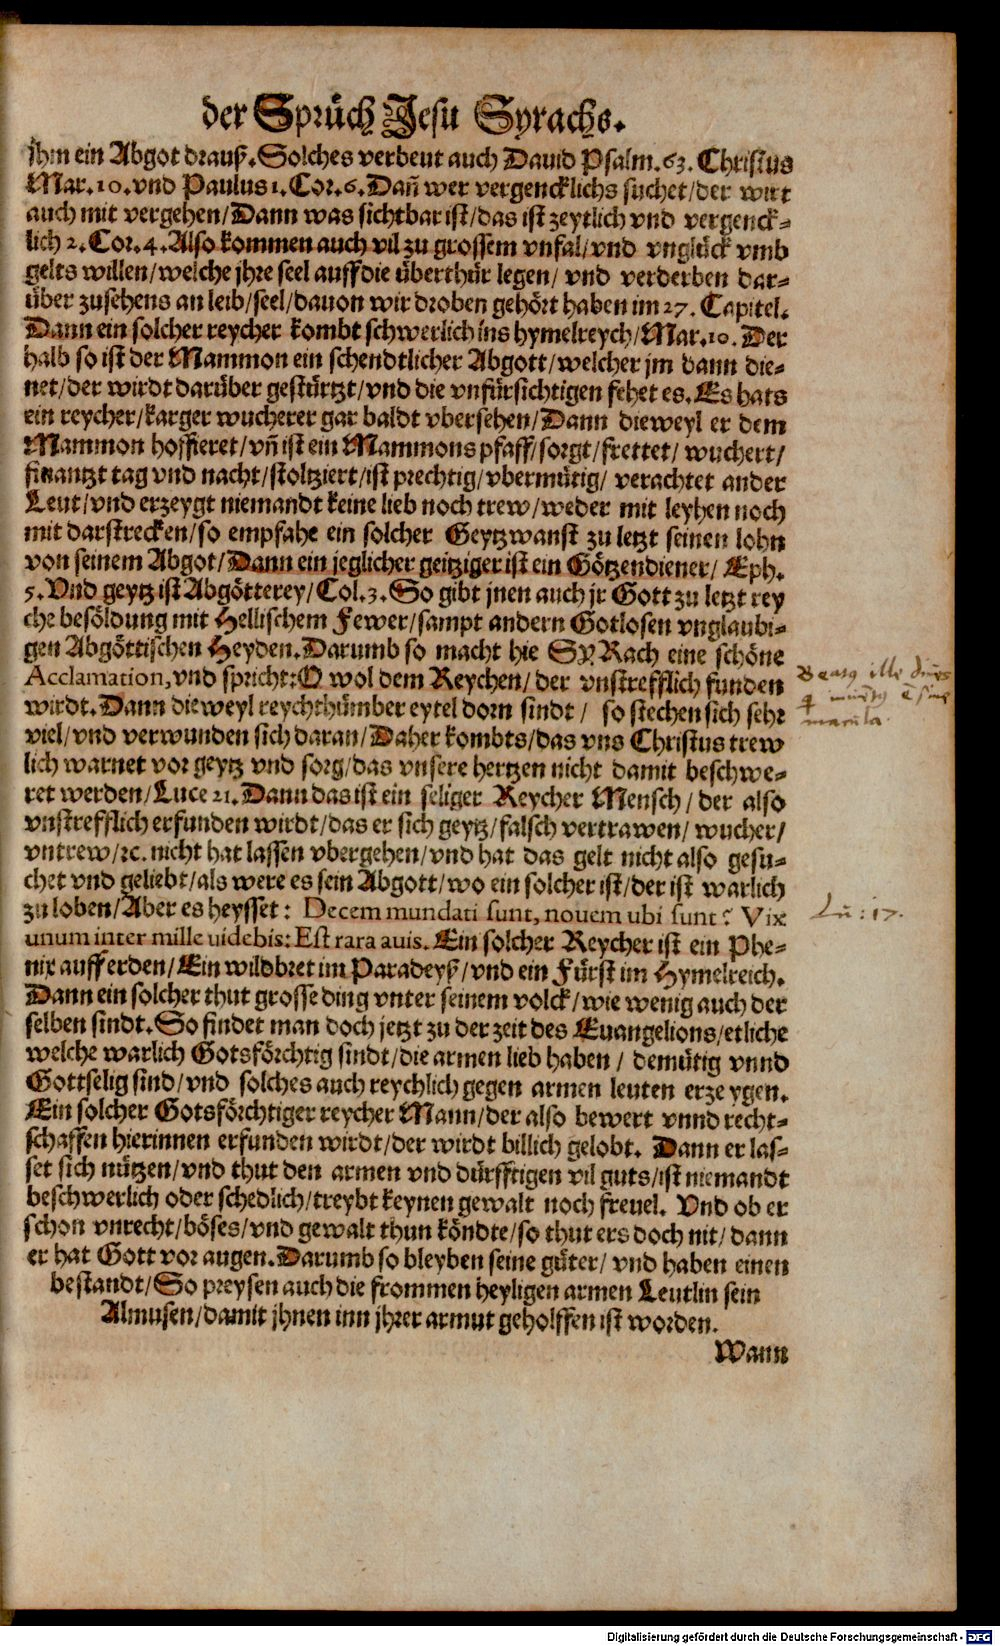 der Sprüch Jesu Syrachs.
jhm ein Abgot drauß. Solches verbeut auch Dauid Psalm. 63. Christus
Mar. 10. vnd Paulus 1. Cor. 6. Dañ wer vergencklichs suchet/ der wirt
auch mit vergehen/ Dann was sichtbar ist/ das ist zeytlich vnd vergenck-
lich 2. Cor. 4. Also kommen auch vil zu grossem vnfal/ vnd vnglück vmb
gelts willen/ welche jhre seel auff die überthür legen/ vnd verderben dar-
über zusehens an leib/ seel/ dauon wir droben gehört haben im 27. Capitel.
Dann ein solcher reycher kombt schwerlich ins hymelreych/ Mar. 10. Der
halb so ist der Mammon ein schendtlicher Abgott/ welcher jm dann die-
net/ der wirdt darüber gestürtzt/ vnd die vnfürsichtigen fehet es. Es hats
ein reycher/ karger wucherer gar baldt vbersehen/ Dann dieweyl er dem
Mammon hoffieret/ vñ ist ein Mammons pfaff/ sorgt/ frettet/ wuchert/
finantzt tag vnd nacht/ stoltziert/ ist prechtig/ vbermütig/ verachtet ander
Leut/ vnd erzeygt niemandt keine lieb noch trew/ weder mit leyhen noch
mit darstrecken/ so empfahe ein solcher Geytzwanst zu letzt seinen lohn
von seinem Abgot/ Dann ein jeglicher geitziger ist ein Götzendiener/ Eph.
5. Vnd geytz ist Abgötterey/ Col. 3. So gibt jnen auch jr Gott zu letzt rey
che besöldung mit Hellischem Fewer/ sampt andern Gotlosen vnglaubi-
gen Abgöttischen Heyden. Darumb so macht hie SYRach eine schöne
Acclamation, vnd spricht: O wol dem Reychen/ der vnstrefflich funden
wirdt. Dann dieweyl reychthümber eytel dorn sindt/ so stechen sich sehr
viel/ vnd verwunden sich daran/ Daher kombts/ das vns Christus trew
lich warnet vor geytz vnd sorg/ das vnsere hertzen nicht damit beschwe-
ret werden/ Luce 21. Dann das ist ein seliger Reycher Mensch/ der also
vnstrefflich erfunden wirdt/ das er sich geytz/ falsch vertrawen/ wucher/
vntrew/ ꝛc. nicht hat lassen vbergehen/ vnd hat das gelt nicht also gesu-
chet vnd geliebt/ als were es sein Abgott/ wo ein solcher ist/ der ist warlich
zu loben/ Aber es heysset: Decem mundati sunt, nouem ubi sunt? Vix
unum inter mille uidebis: Est rara auis. Ein solcher Reycher ist ein Phe-
nix auff erden/ Ein wildbret im Paradeyß/ vnd ein Fürst im Hymelreich.
Dann ein solcher thut grosse ding vnter seinem volck/ wie wenig auch der
selben sindt. So findet man doch jetzt zu der zeit des Euangelions/ etliche
welche warlich Gotsförchtig sindt/ die armen lieb haben/ demütig vnnd
Gottselig sind/ vnd solches auch reychlich gegen armen leuten erzeygen.
Ein solcher Gotsförchtiger reycher Mann/ der also bewert vnnd recht-
schaffen hierinnen erfunden wirdt/ der wirdt billich gelobt. Dann er las-
set sich nützen/ vnd thut den armen vnd dürfftigen vil guts/ ist niemandt
beschwerlich oder schedlich/ treybt keynen gewalt noch freuel. Vnd ob er
schon vnrecht/ böses/ vnd gewalt thun köndte/ so thut ers doch nit/ dann
er hat Gott vor augen. Darumb so bleyben seine güter/ vnd haben einen
bestandt/ So preysen auch die frommen heyligen armen Leutlin sein
Almusen/ damit jhnen inn jhrer armut geholffen ist worden.
Wann
ille
macula.
Lu: 17.
Digitalisierung gefördert durch die Deutsche Forschungsgemeinschaft - DFG